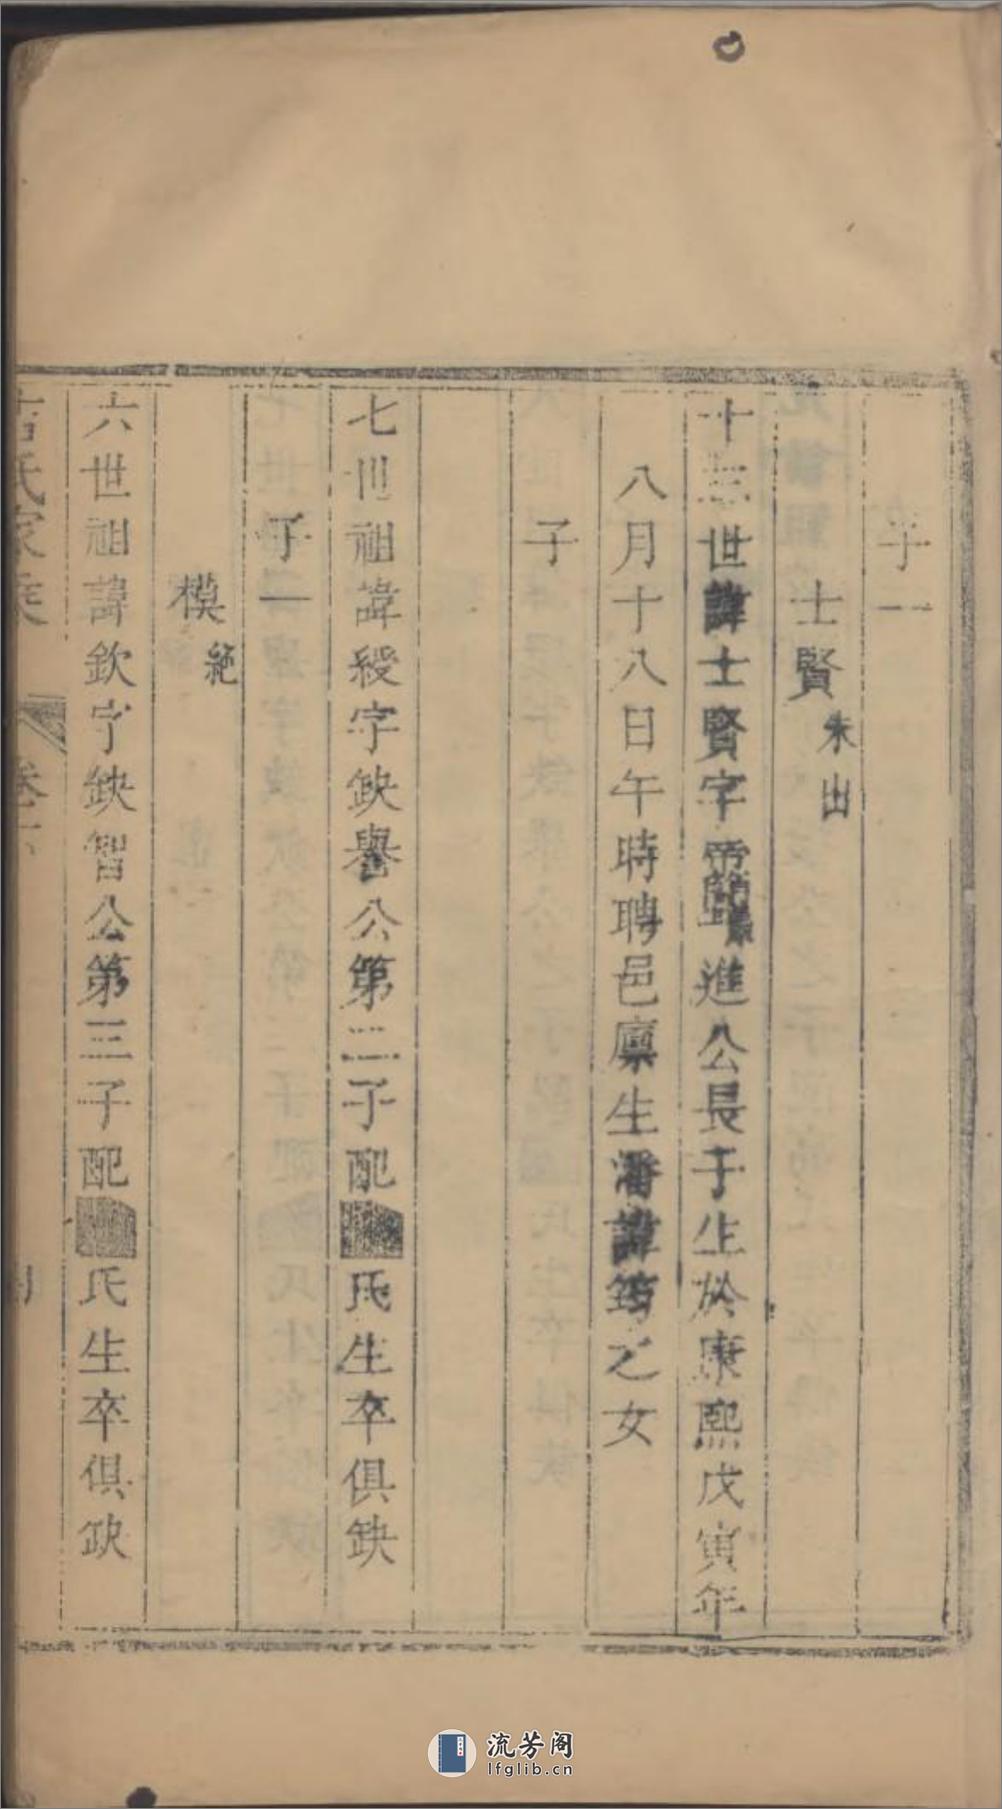 子一
士賢 朱出
十三世諱士賢字進公長子生於康熙戊寅年
八月十八日午時聘邑廪生潘諱筠之女
子
七世祖諱綬字缺譽公第二子配氏生卒俱缺
子一
模 絶
六世祖諱欽字缺智公第三子配氏生卒俱缺
氏家乘 卷
流芳阁
lfglib.cn